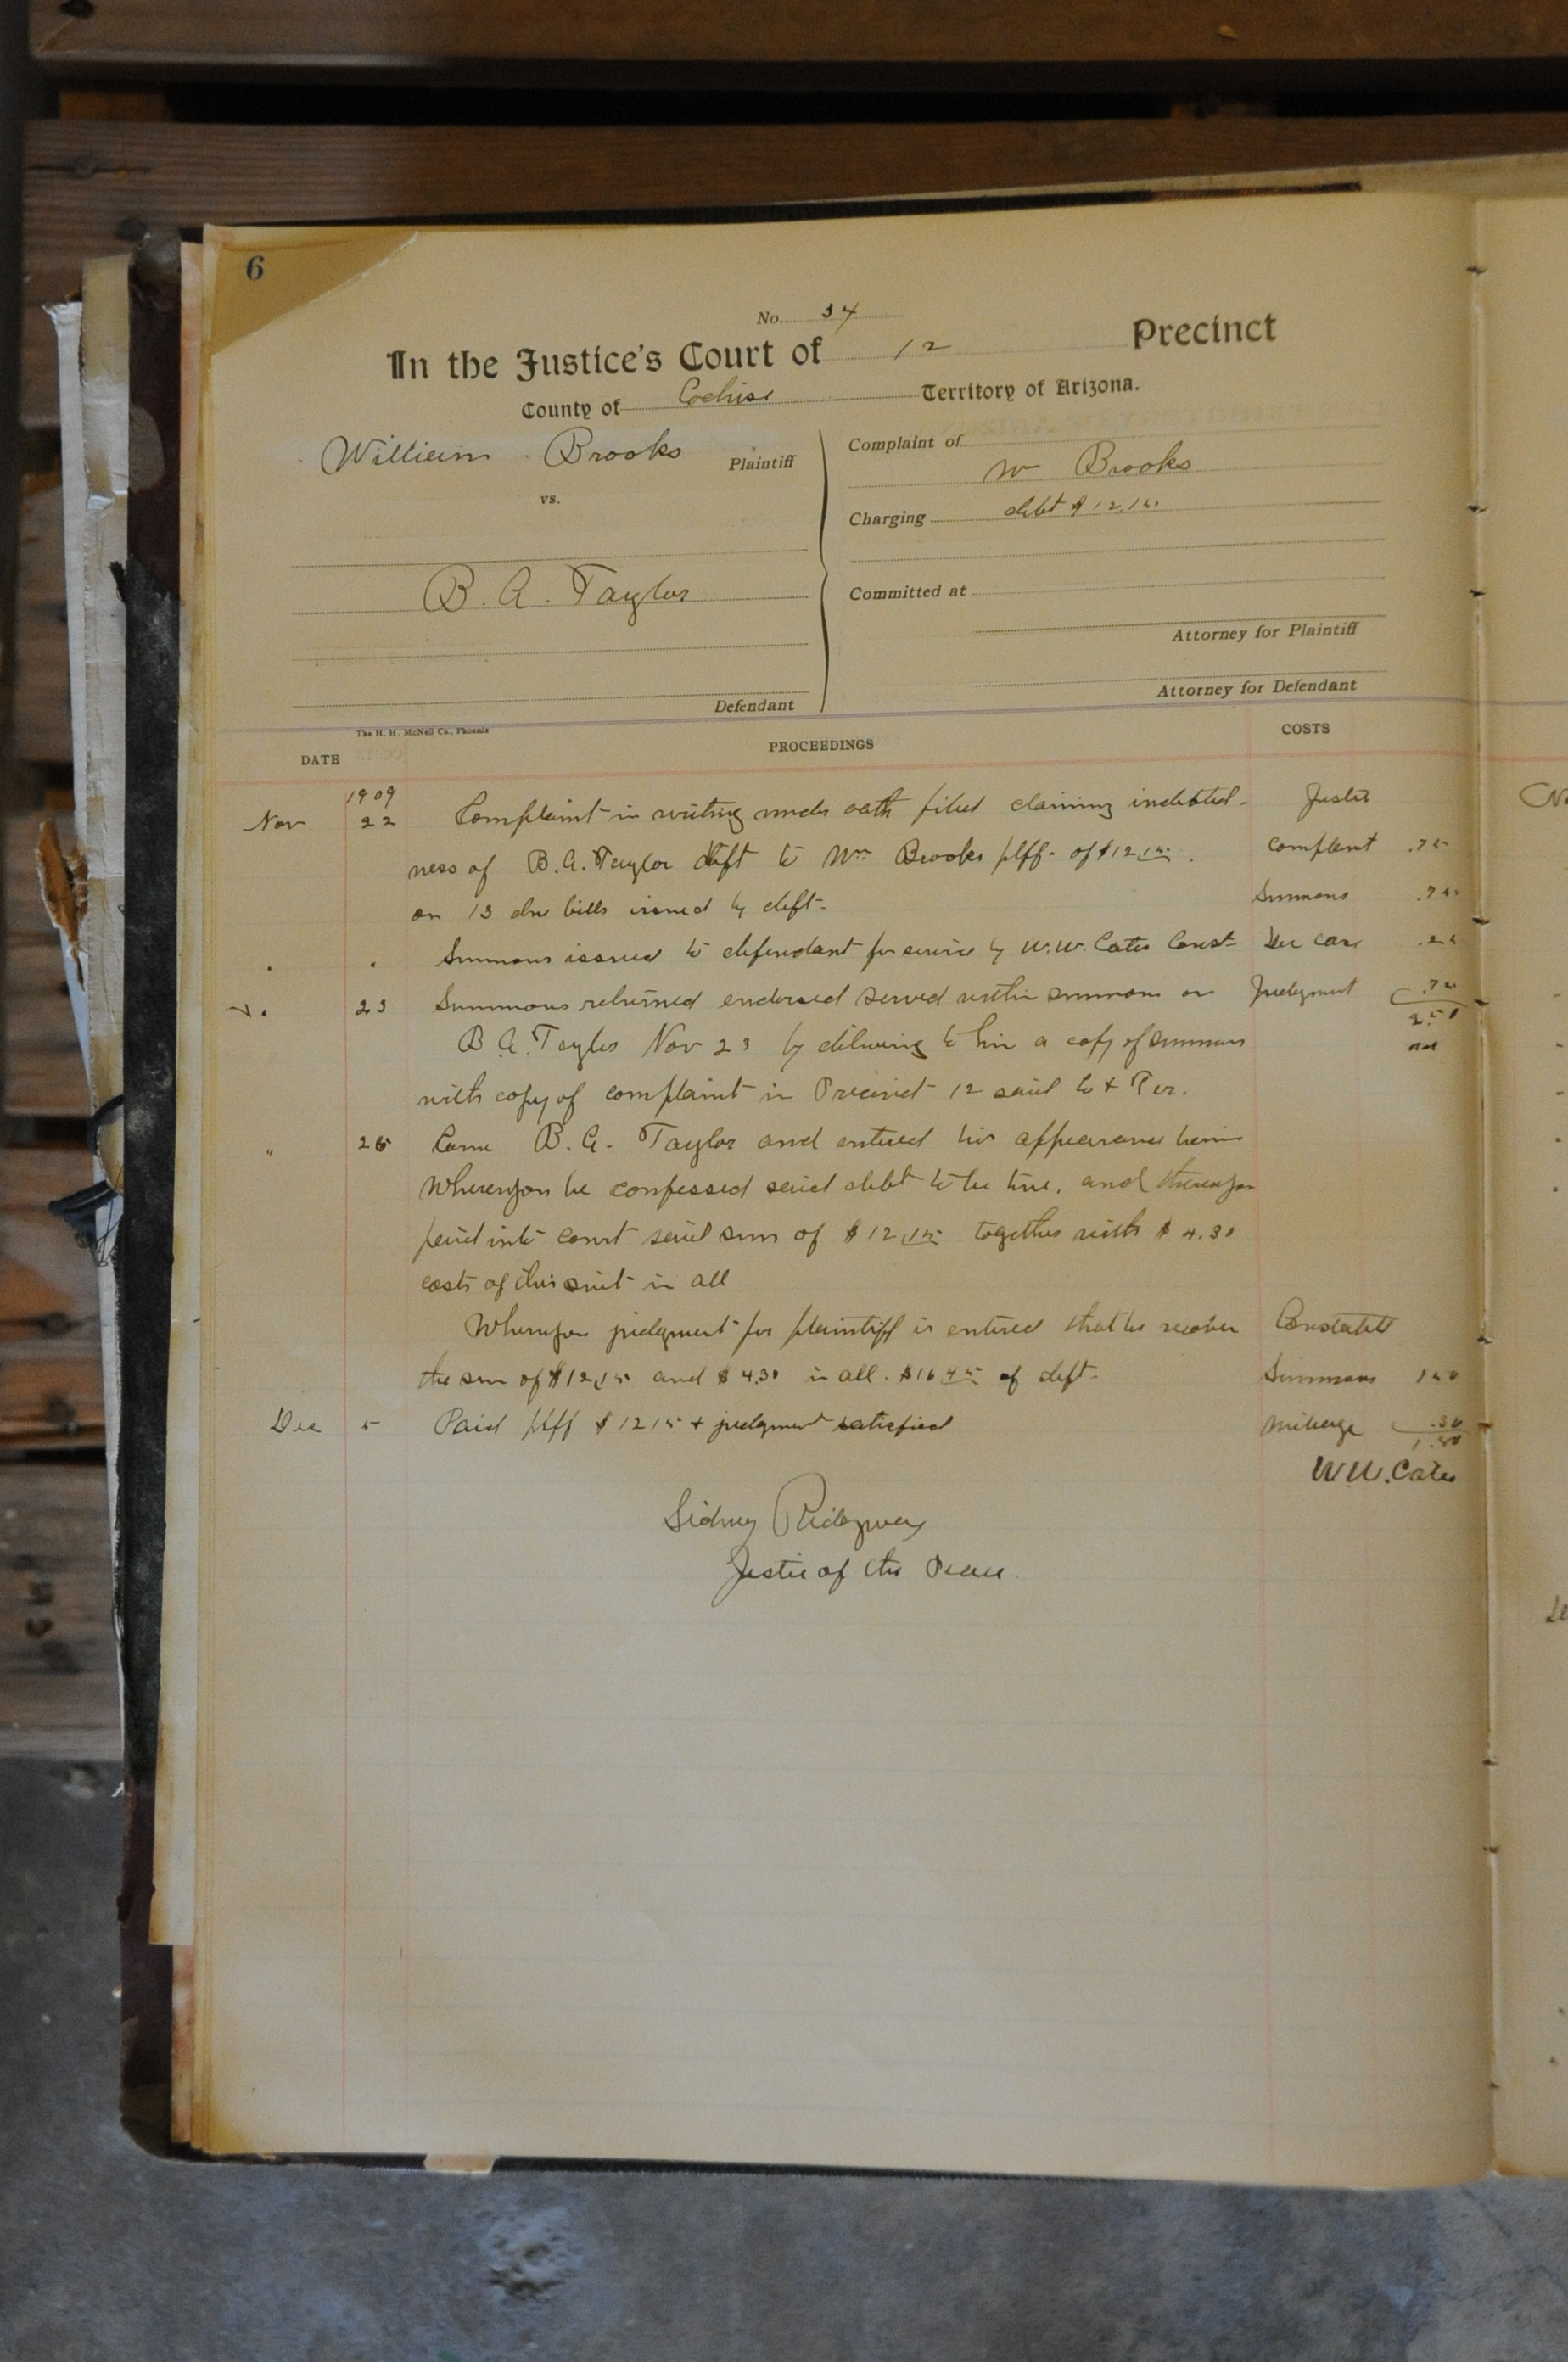 6
No. 34
In the Justice's Court of 12 Precinct
County of Cochise Territory of Arizona.
William Brooks Plaintiff
vs.
B. A. Taylor
Defendant
Complaint of
Wm Brooks
Charging debt $12.15
Committed at
Attorney for Plaintiff
Attorney for Defendant
The H. H. McNeil Co., Phoenix
DATE PROCEEDINGS COSTS
1909
Nov 22 Complaint in writing under oath filed claiming indebted- Justice
ness of B.A. Taylor deft to Wm Brooks plff. of $12.15. Complaint .75
on 13 due bills issued by deft. Summons .75
Summons issued to defendant for service by W.W. Cates Const. case .25
23 Summons returned endorsed served within summons on Judgment .75
B A. Taylor Nov 23 by delivering to him a copy of summons 2.50
with copy of complaint in Precinct 12 said Co & Ter.
" 26 Came B. A. Taylor and entered his appearance herein
Whereupon he confessed said debt to be true, and thereupon
paid into court said sum of $12.15 together with $4.30
costs of this suit in all
Whereupon judgment for plaintiff is entered that he recover Constable
the sum of $12.15 and $4.30 in all. $16.45 of deft. Summons 1.50
Dec 5 Paid plff $12.15 & judgment satisfied Mileage .30
1.80
W.W. Cates
Sidney Ridgway
Justice of the Peace.